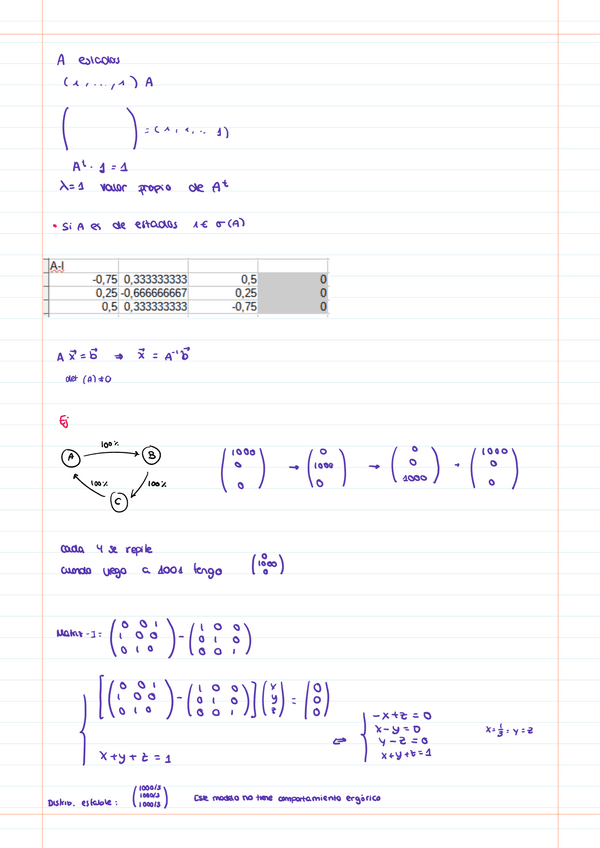 A estados
(1, ..., 1) A
( ) = (1, 1, ... 1)
Aᵗ · 1 = 1
λ=1 valor propio de Aᵗ
• Si A es de estados 1 ∈ σ(A)
A-I
-0,75 0,333333333 0,5 0
0,25 -0,666666667 0,25 0
0,5 0,333333333 -0,75 0
A x⃗ = b⃗ ⇒ x⃗ = A⁻¹ b⃗
det (A) ≠ 0
Ej
100% A B 100% 100% C
(1000 0 0) → (0 1000 0) → (0 0 1000) → (1000 0 0)
cada 4 se repite
cuando llego a 1001 tengo (0 1000 0)
Matriz - I = (0 0 1 / 1 0 0 / 0 1 0) - (1 0 0 / 0 1 0 / 0 0 1)
{ [(0 0 1 / 1 0 0 / 0 1 0) - (1 0 0 / 0 1 0 / 0 0 1)] (x y z) = (0 0 0)
x + y + z = 1
⇔ { -x + z = 0
x - y = 0
y - z = 0
x + y + z = 1
x = 1/3 = y = z
Distrib. estable: (1000/3 1000/3 1000/3) Este modelo no tiene comportamiento ergórico